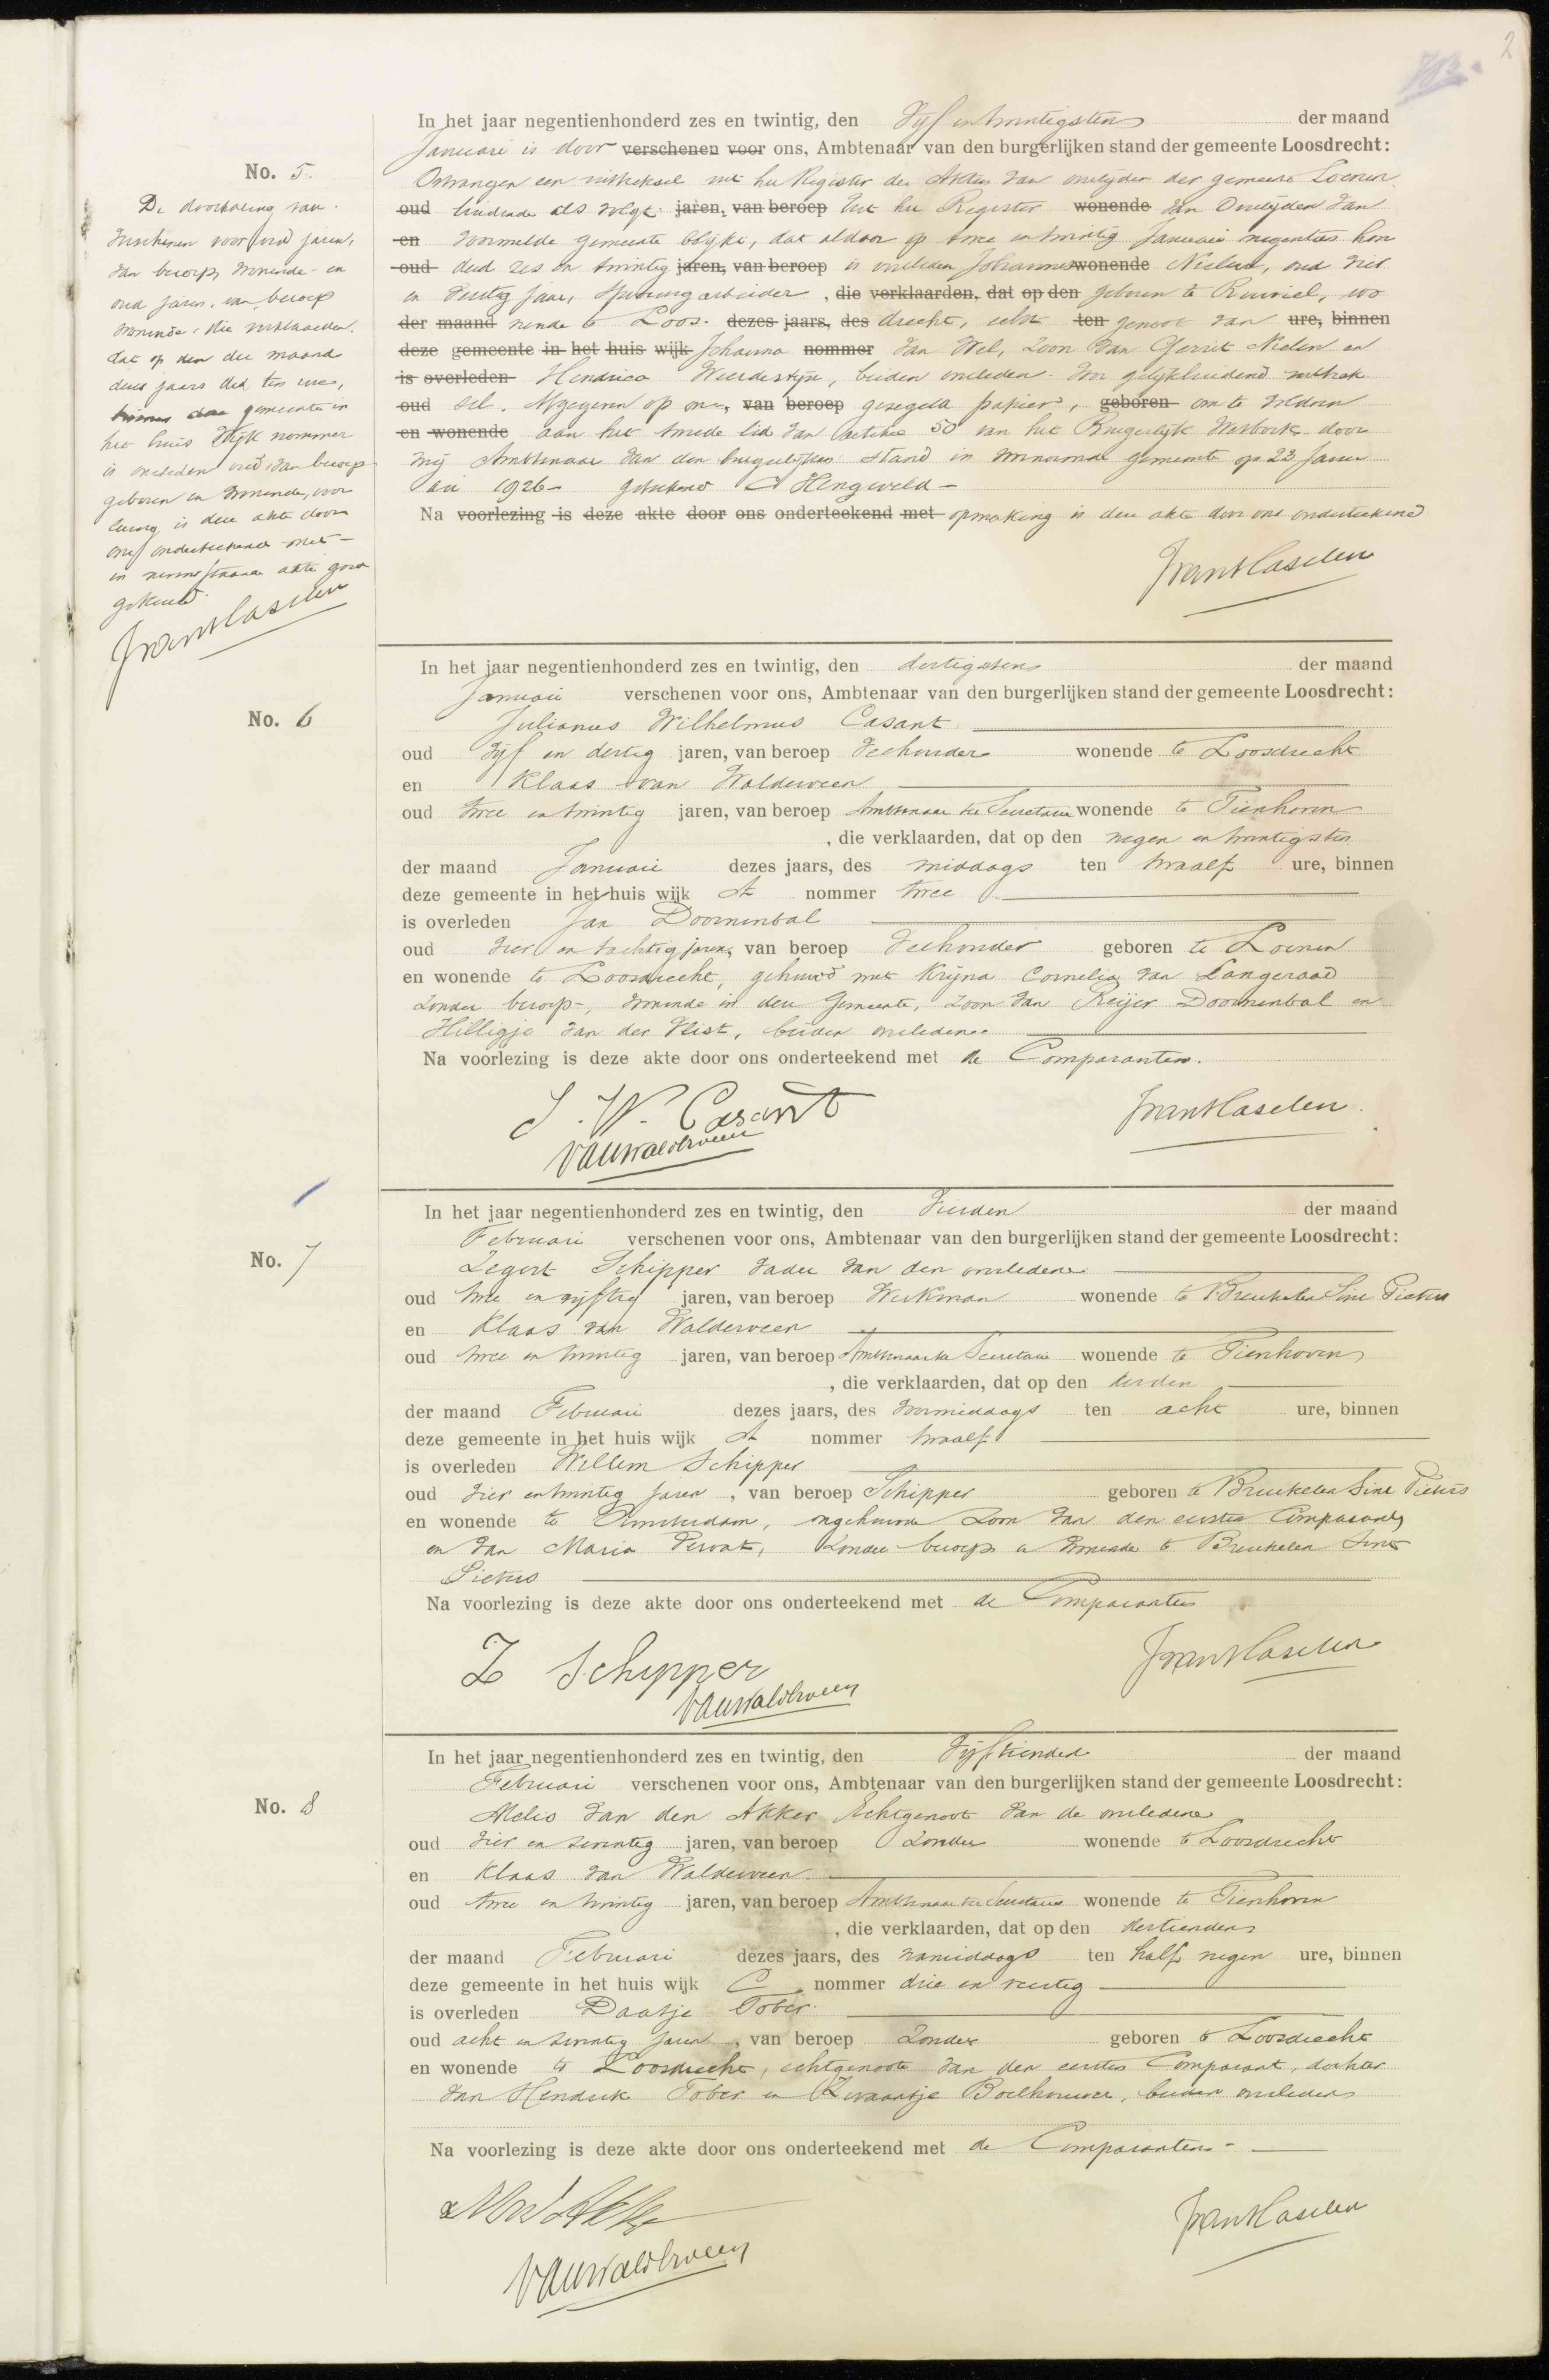 2
No. 5.
De doorhaling van
verschenen voor oud jaren,
van beroep, wonende en
oud jaren, van beroep
wonende, die verklaarden,
dat op den der maand
dezes jaars des ten ure,
binnen deze gemeente in
het huis wijk nommer
is overleden oud, van beroep
geboren en wonende, voor
lezing is deze akte door
ons onderteekend met
in nevenstaande akte goed
gekeurd.
In het jaar negentienhonderd zes en twintig, den Vijf en twintigsten der maand
Januari is door verschenen voor ons, Ambtenaar van den burgerlijken stand der gemeente Loosdrecht:
Ontvangen een uittreksel uit het Register der Akten van overlijden der gemeente Loenen
oud luidende als volgt: jaren, van beroep Uit het Register wonende van Overlijden van
en voormelde gemeente blijkt, dat aldaar op twee en twintig Januari negentien hon
oud derd zes en twintig jaren, van beroep is overleden Johannes wonende Nielen, oud vier
en dertig jaar, spoorwegarbeider, die verklaarden, dat op den geboren te Ruwiel, wo
der maand nende te Loos- dezes jaars, des drecht, echt ten genoot van ure, binnen
deze gemeente in het huis wijk Johanna nommer van Wel, zoon van Gerrit Nielen en
is overleden Hendrica, beiden overleden. Voor gelijkluidend uittrek
oud sel. Afgegeven op on-, van beroep gezegeld papier, geboren om te voldoen
en wonende aan het tweede lid van artikel 50 van het Burgerlijk Wetboek door
mij Ambtenaar van den burgerlijken stand in voornoemde gemeente op 23 Janu
ari 1926 - geteekend A Hengeveld -
Na voorlezing is deze akte door ons onderteekend met opmaking is deze akte door ons onderteekend
No. 6
In het jaar negentienhonderd zes en twintig, den dertigsten der maand
Januari verschenen voor ons, Ambtenaar van den burgerlijken stand der gemeente Loosdrecht:
Julianus Wilhelmus Casant
oud vijf en dertig jaren, van beroep Veehouder wonende te Loosdrecht
en Klaas van Walderveen
oud twee en twintig jaren, van beroep Ambtenaar ter Secretarie wonende te Tienhoven
, die verklaarden, dat op den negen en twintigsten
der maand Januari dezes jaars, des middags ten twaalf ure, binnen
deze gemeente in het huis wijk A nommer twee
is overleden Jan Doornenbal
oud vier en tachtig jaren, van beroep Veehouder geboren te Loenen
en wonende te Loosdrecht, gehuwd met Krijna Cornelia van Langeraad
zonder beroep, wonende in deze Gemeente, zoon van Reijer Doornenbal en
Hilligje van der Vlist, beiden overleden.
Na voorlezing is deze akte door ons onderteekend met de Comparanten.
J. W. Casant
vanWalderveen
No. 7
In het jaar negentienhonderd zes en twintig, den Vierden der maand
Februari verschenen voor ons, Ambtenaar van den burgerlijken stand der gemeente Loosdrecht:
Zegert Schipper vader van den overledene
oud twee en vijftig jaren, van beroep Werkman wonende te Breukelen Sint Pieters
en Klaas van Walderveen
oud twee en twintig jaren, van beroep Ambtenaar ter Secretarie wonende te Tienhoven
, die verklaarden, dat op den derden
der maand Februari dezes jaars, des voormiddags ten acht ure, binnen
deze gemeente in het huis wijk A nommer twaalf
is overleden Willem Schipper
oud vier en twintig jaren, van beroep Schipper geboren te Breukelen Sint Pieters
en wonende te Amsterdam, ongehuwde zoon van den eersten Comparant
en van Maria, zonder beroep en wonende te Breukelen Sint
Pieters
Na voorlezing is deze akte door ons onderteekend met de Comparanten
Z Schipper
vanWalderveen
No. 8
In het jaar negentienhonderd zes en twintig, den Vijftienden der maand
Februari verschenen voor ons, Ambtenaar van den burgerlijken stand der gemeente Loosdrecht:
Melis van den Akker Echtgenoot van de overledene
oud vier en zeventig jaren, van beroep Zonder wonende te Loosdrecht
en Klaas van Walderveen
oud twee en twintig jaren, van beroep Ambtenaar ter Secretarie wonende te Tienhoven
, die verklaarden, dat op den dertienden
der maand Februari dezes jaars, des namiddags ten half negen ure, binnen
deze gemeente in het huis wijk C nommer drie en veertig
is overleden Daatje Tober
oud acht en zeventig jaren, van beroep Zonder geboren te Loosdrecht
en wonende te Loosdrecht, echtgenoote van den eersten Comparant, dochter
van Hendrik Tober en Zwaantje Boelhouwer, beiden overleden
Na voorlezing is deze akte door ons onderteekend met de Comparanten -
vanWalderveen